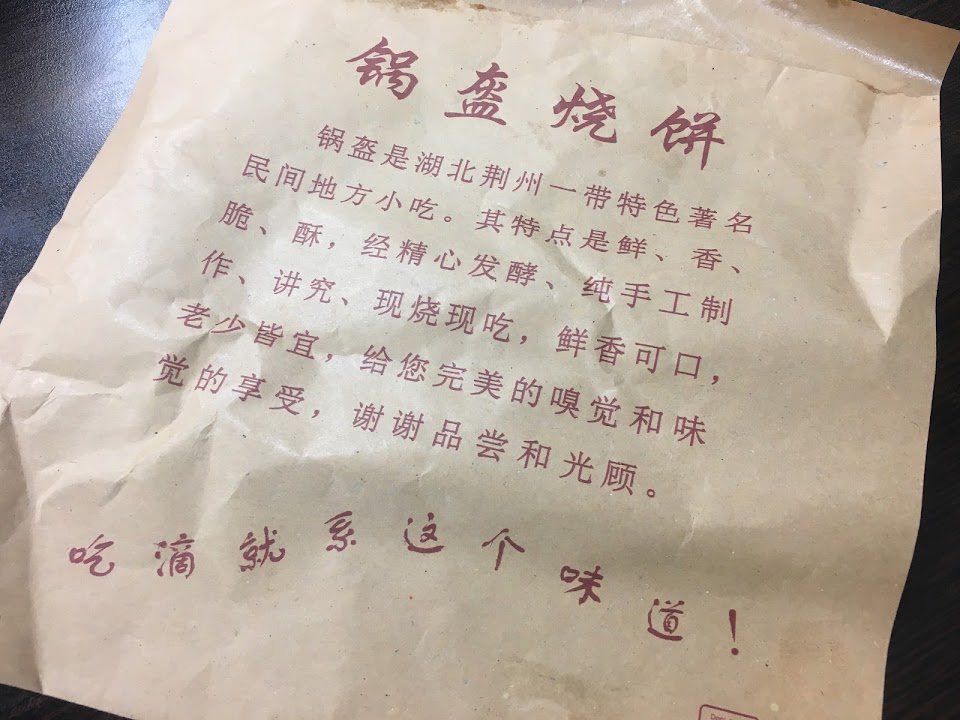 锅盔烧饼
锅盔是湖北荆州一带特色著名
民间地方小吃。其特点是鲜、香、
脆、酥，经精心发酵、纯手工制
作、讲究、现烧现吃，鲜香可口，
老少皆宜，给您完美的嗅觉和味
觉的享受，谢谢品尝和光顾。
吃滴就系这个味道！